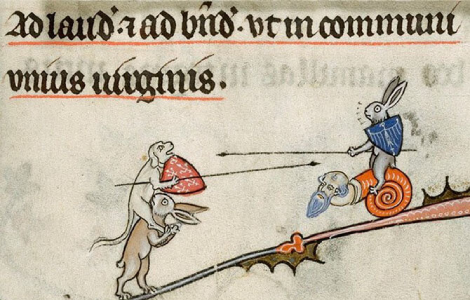 Ad laud̃. ⁊ ad bñd̃. vt in communi
vnius uirginis.